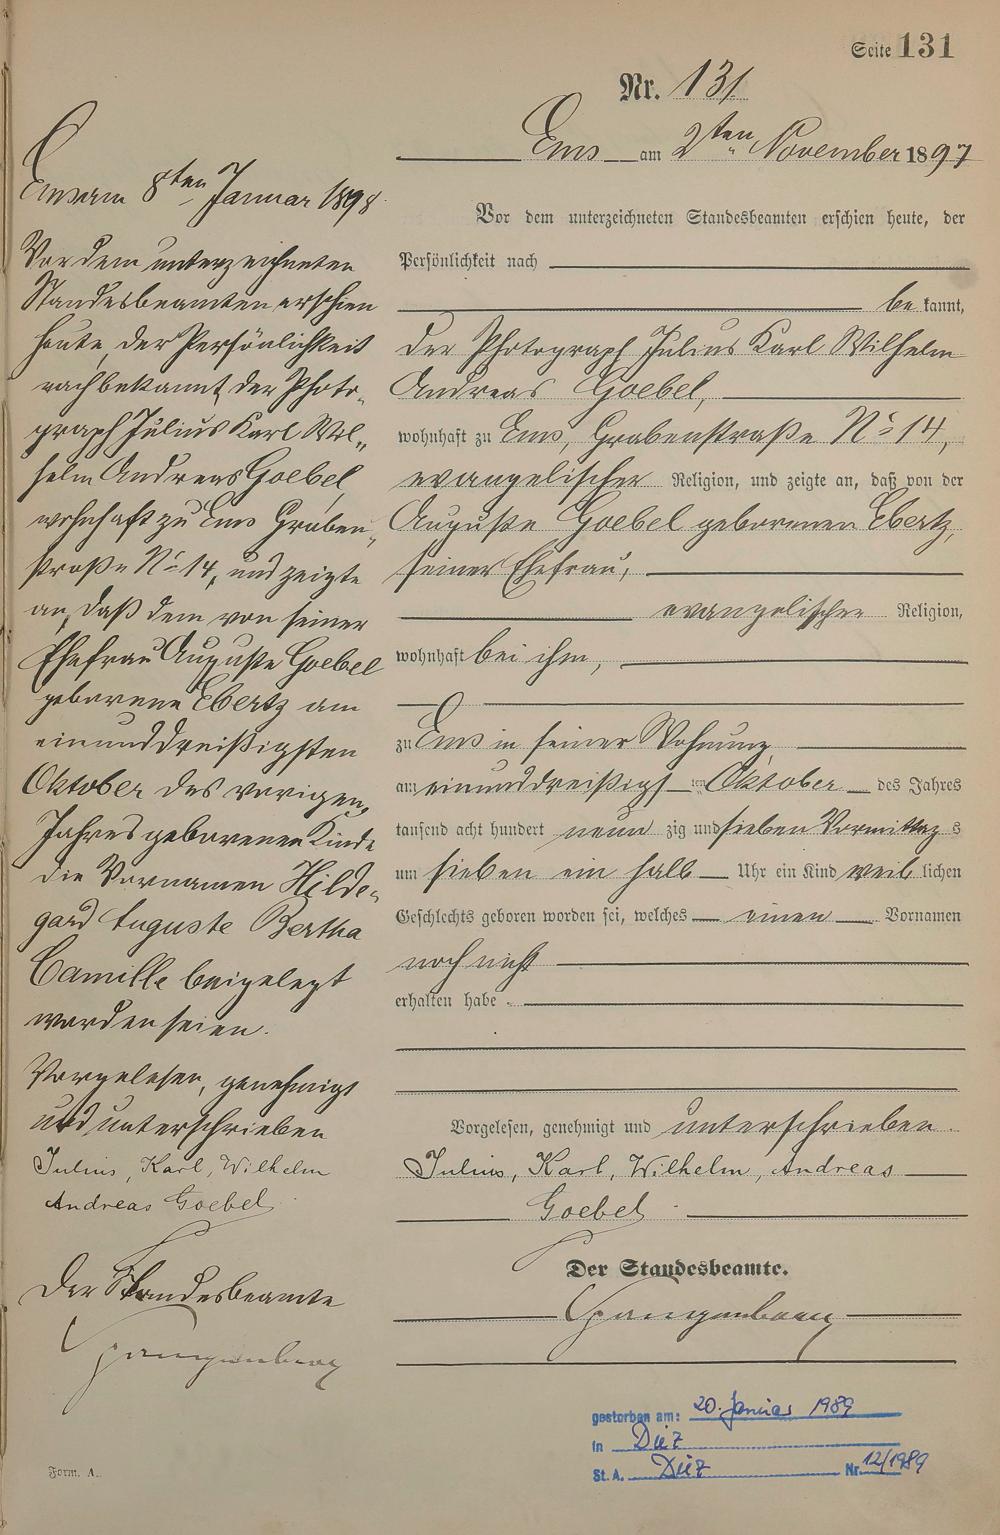 Seite 131
Nr. 131
Ems am 2ten November 1897
Vor dem unterzeichneten Standesbeamten erschien heute, der
Persönlichkeit nach
be kannt,
der Photograph Julius Karl Wilhelm
Andreas Goebel,
wohnhaft zu Ems, Grabenstraße No 14,
evangelischer Religion, und zeigte an, daß von der
Auguste Goebel geborenen Ebertz,
seiner Ehefrau,
evangelischer Religion,
wohnhaft bei ihm,
zu Ems in seiner Wohnung
am einunddreißigs ten Oktober des Jahres
tausend acht hundert neun zig und sieben Vormittag s
um sieben ein halb Uhr ein Kind weib lichen
Geschlechts geboren worden sei, welches einen Vornamen
noch nicht
erhalten habe.
Vorgelesen, genehmigt und unterschrieben.
Julius, Karl, Wilhelm, Andreas
Goebel
Der Standesbeamte.
Ems am 8ten Januar 1898.
Vor dem unterzeichneten
Standesbeamten erschien
heute, der Persönlichkeit
nach bekannt, der Photo-
graph Julius Karl Wil-
helm Andreas Goebel,
wohnhaft zu Ems Graben-
straße No 14, und zeigte
an, daß dem von seiner
Ehefrau Auguste Goebel
geborene Ebertz am
einunddreißigsten
Oktober des vorigen
Jahres geborenen Kinde
die Vornamen Hilde-
gard Auguste Bertha
Camille beigelegt
worden seien.
Vorgelesen, genehmigt
und unterschrieben
Julius, Karl, Wilhelm
Andreas Goebel
Der Standesbeamte
gestorben am: 20. Januar 1989
in Diez
St. A. Diez Nr. 12/1989
Form. A.